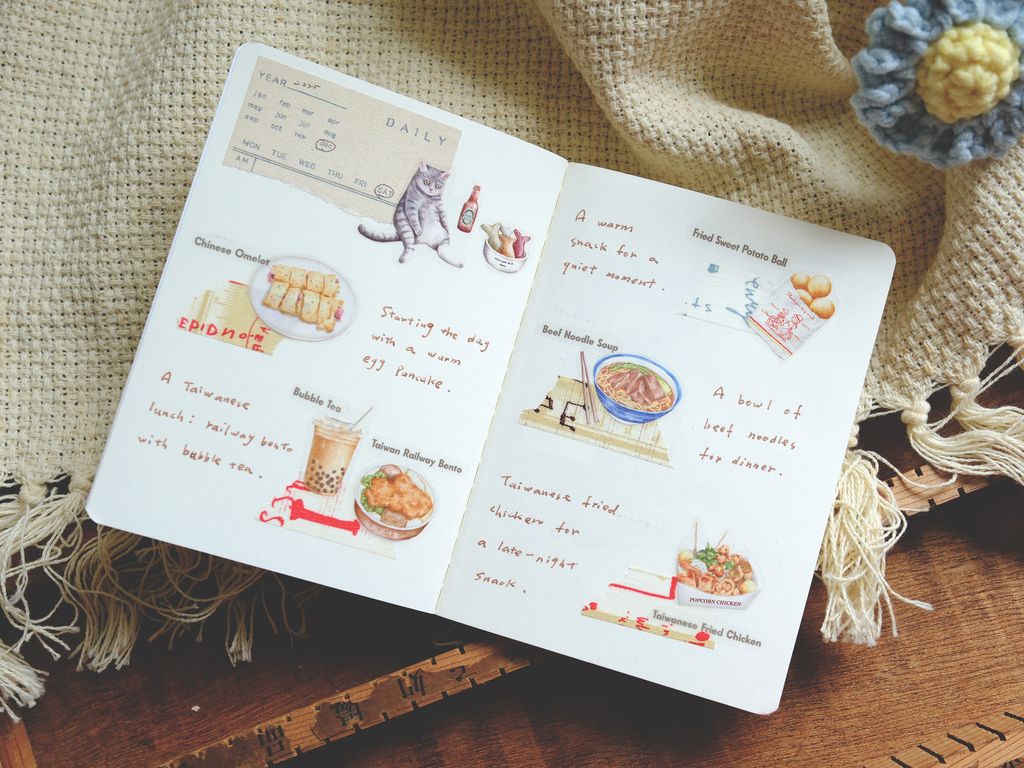 YEAR 2025
jan feb mar apr
may jun jul aug
sep oct nov dec
DAILY
MON TUE WED THU FRI SAT
AM
Chinese Omelet
EPIDNOF
Starting the day
with a warm
egg pancake.
A Taiwanese
lunch: railway bento
with bubble tea.
Bubble Tea
Taiwan Railway Bento
A warm
snack for a
quiet moment.
Fried Sweet Potato Ball
Beef Noodle Soup
A bowl of
beef noodles
for dinner.
Taiwanese fried
chicken for
a late-night
snack.
POPCORN CHICKEN
Taiwanese Fried Chicken